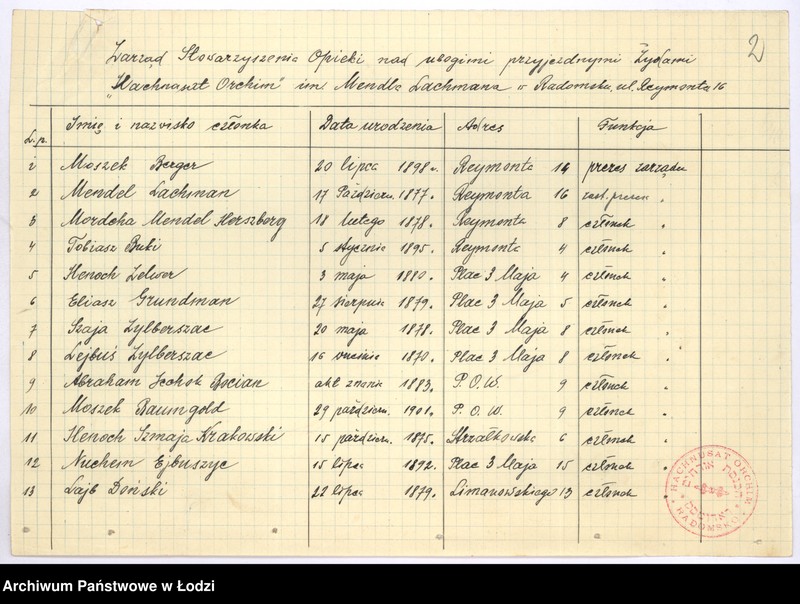 2
Zarząd Stowarzyszenia Opieki nad ubogimi przyjezdnymi Żydami
"Hachnusat Orchim" im. Mendla Lachmana w Radomsku, ul. Reymonta 16
L.p. Imię i nazwisko członka Data urodzenia Adres Funkcja
1 Moszek Berger 20 lipca 1898 r. Reymonta 14 prezes zarządu
2 Mendel Lachman 17 Październ. 1877. Reymonta 16 zast. prezesa "
3 Mordcha Mendel Herszberg 18 lutego 1878. Reymonta 8 członek "
4 Tobiasz Buki 5 stycznia 1895. Reymonta 4 członek "
5 Henoch Zelwer 3 maja 1880. Plac 3 Maja 4 członek "
6 Eliasz Grundman 27 sierpnia 1879. Plac 3 Maja 5 członek "
7 Szaja Zylberszac 20 maja 1878. Plac 3 Maja 8 członek "
8 Lejbuś Zylberszac 16 1870. Plac 3 Maja 8 członek "
9 Abraham Icchok Bocian akt znania 1883. P.O.W. 9 członek "
10 Moszek Baumgold 29 październ. 1901. P.O.W. 9 członek "
11 Henoch Szmaja Krakowski 15 październ. 1875. Strzałkowska 6 członek "
12 Nuchem Ejbuszyc 15 lipca 1892. Plac 3 Maja 15 członek "
13 Lajb Doński 22 lipca 1879. Limanowskiego 13 członek "
HACHNUSAT ORCHIM
הכנסת אורחים
RADOMSKO
Archiwum Państwowe w Łodzi